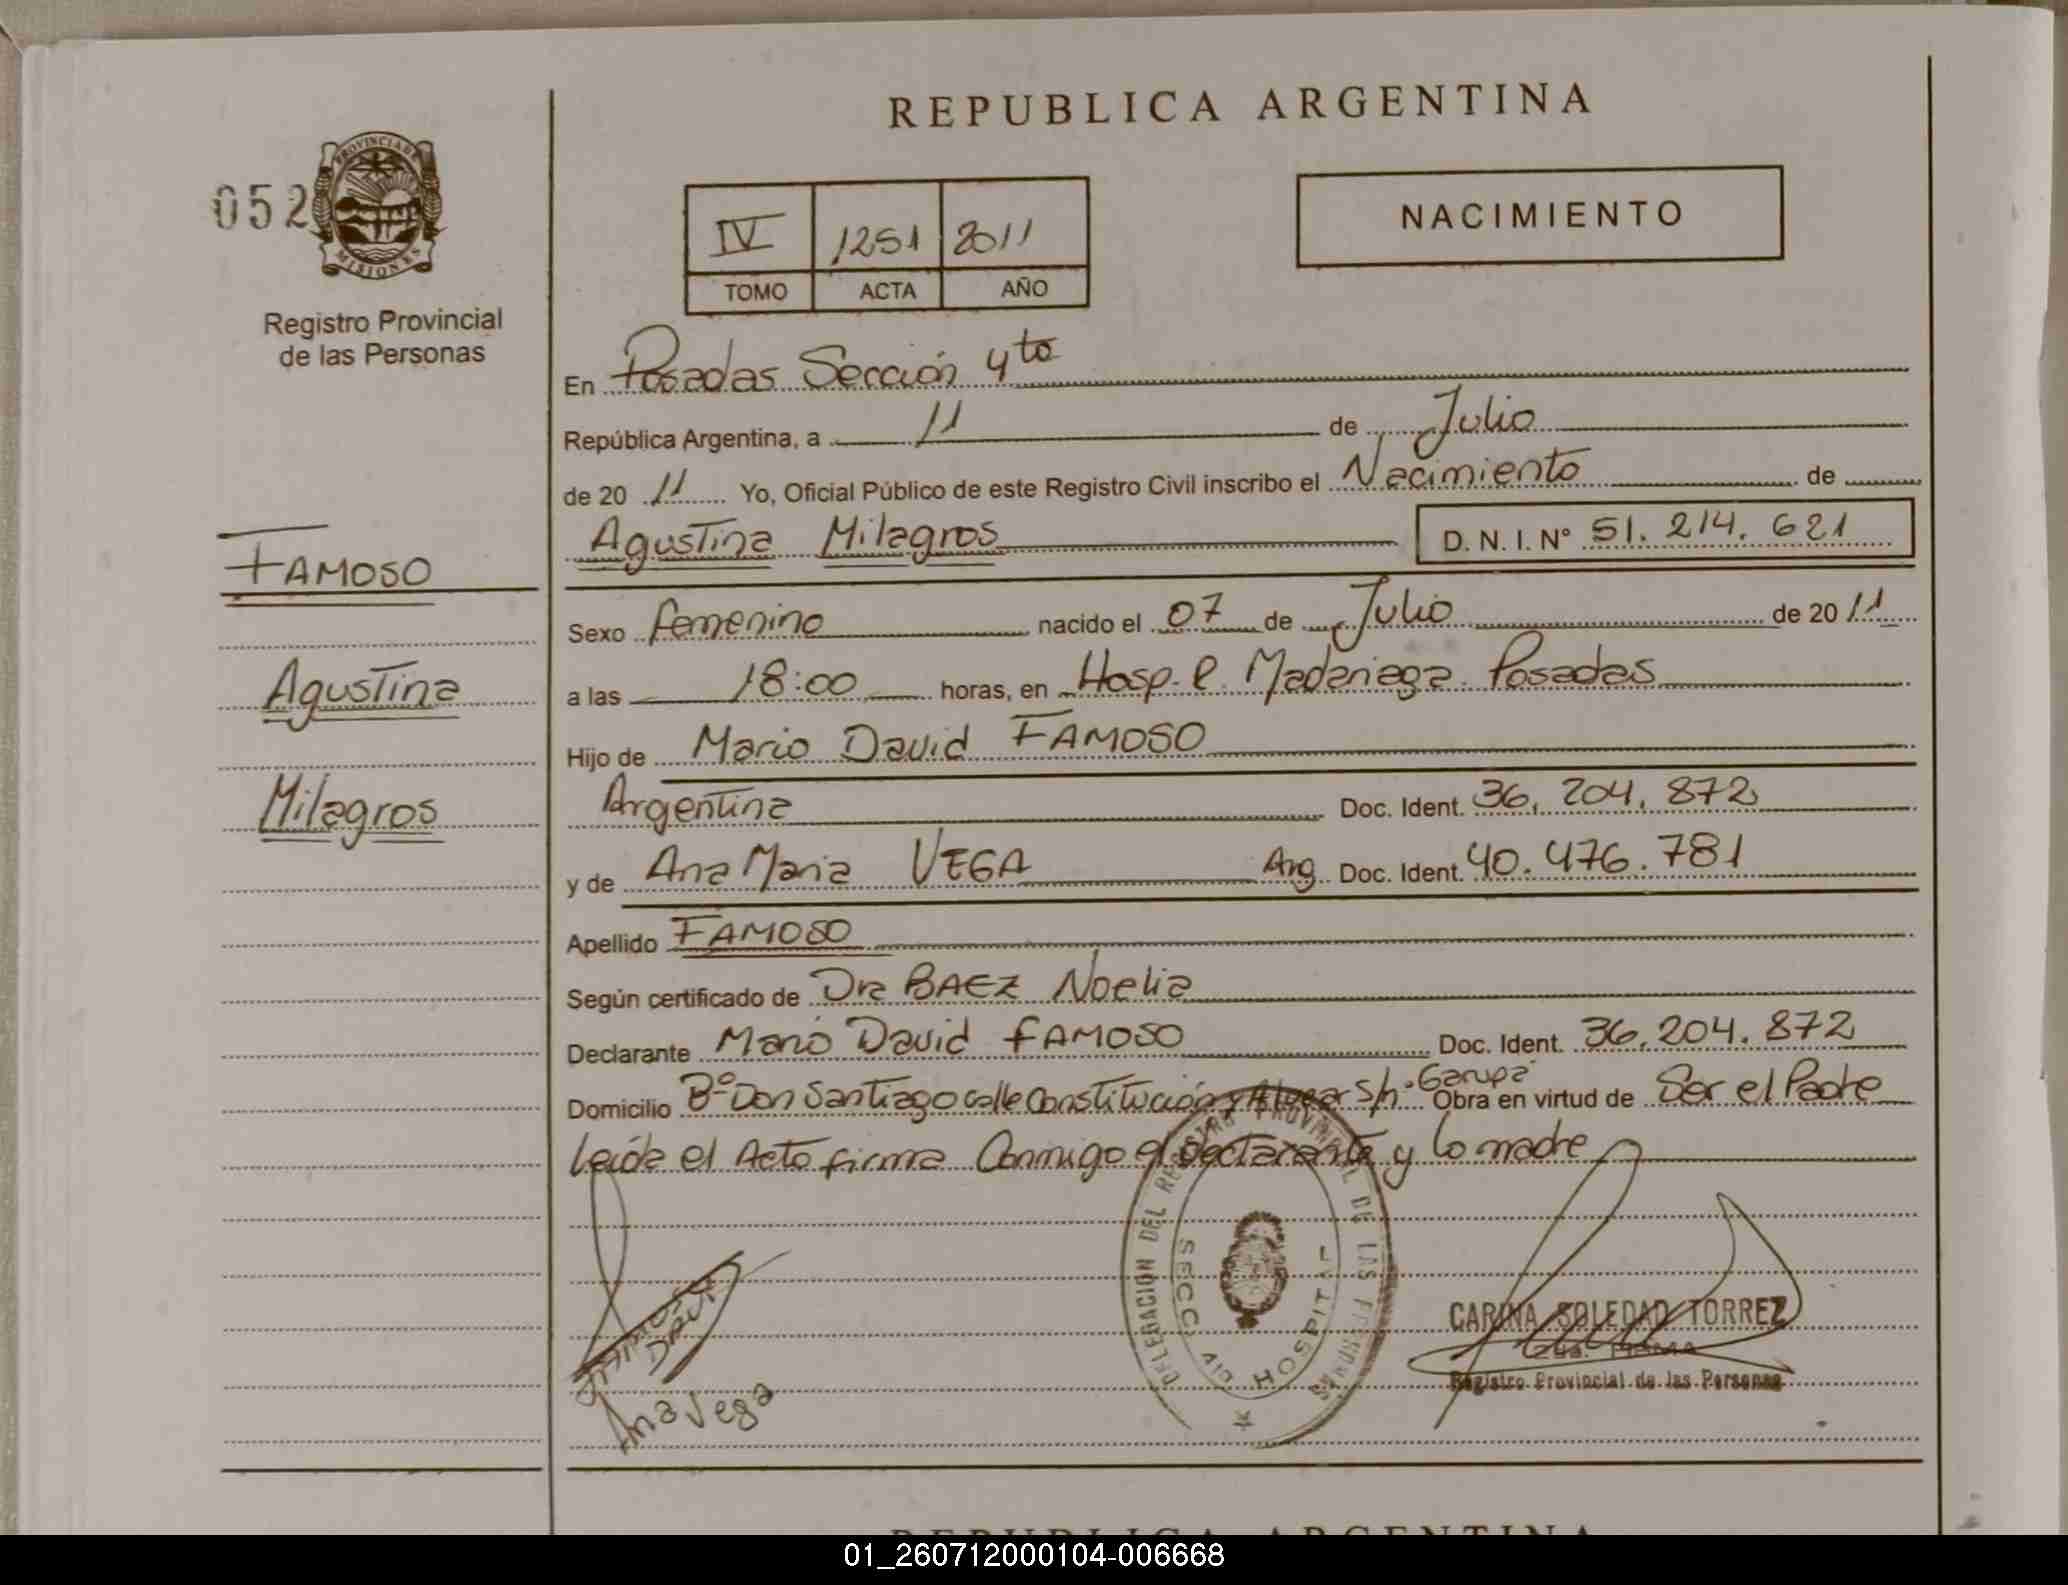 REPUBLICA ARGENTINA
052
PROVINCIA DE
MISIONES
Registro Provincial
de las Personas
NACIMIENTO
IV 1251 2011
TOMO ACTA AÑO
En Posadas Sección 4to
República Argentina, a 11 de Julio
de 20 11 Yo, Oficial Público de este Registro Civil inscribo el Nacimiento de
Agustina Milagros D. N. I. Nº 51.214.621
FAMOSO
Agustina
Milagros
Sexo femenino nacido el 07 de Julio de 20 11
a las 18:00 horas, en Hosp. R. Madariaga Posadas
Hijo de Mario David FAMOSO
Argentina Doc. Ident. 36.204.872
y de Ana Maria VEGA Arg. Doc. Ident. 40.476.781
Apellido FAMOSO
Según certificado de Dra BAEZ Noelia
Declarante Mario David FAMOSO Doc. Ident. 36.204.872
Domicilio Bº Don Santiago calle Constitución y Alvear s/n. Garupa Obra en virtud de Ser el Padre
Leída el Acta firma Conmigo el declarante y la madre
DELEGACION DEL REGISTRO PROVINCIAL DE LAS PERSONAS
HOSPITAL
DAVID
Ana Vega
CARINA SOLEDAD TORREZ
Registro Provincial de las Personas
REPUBLICA ARGENTINA
01_260712000104-006668